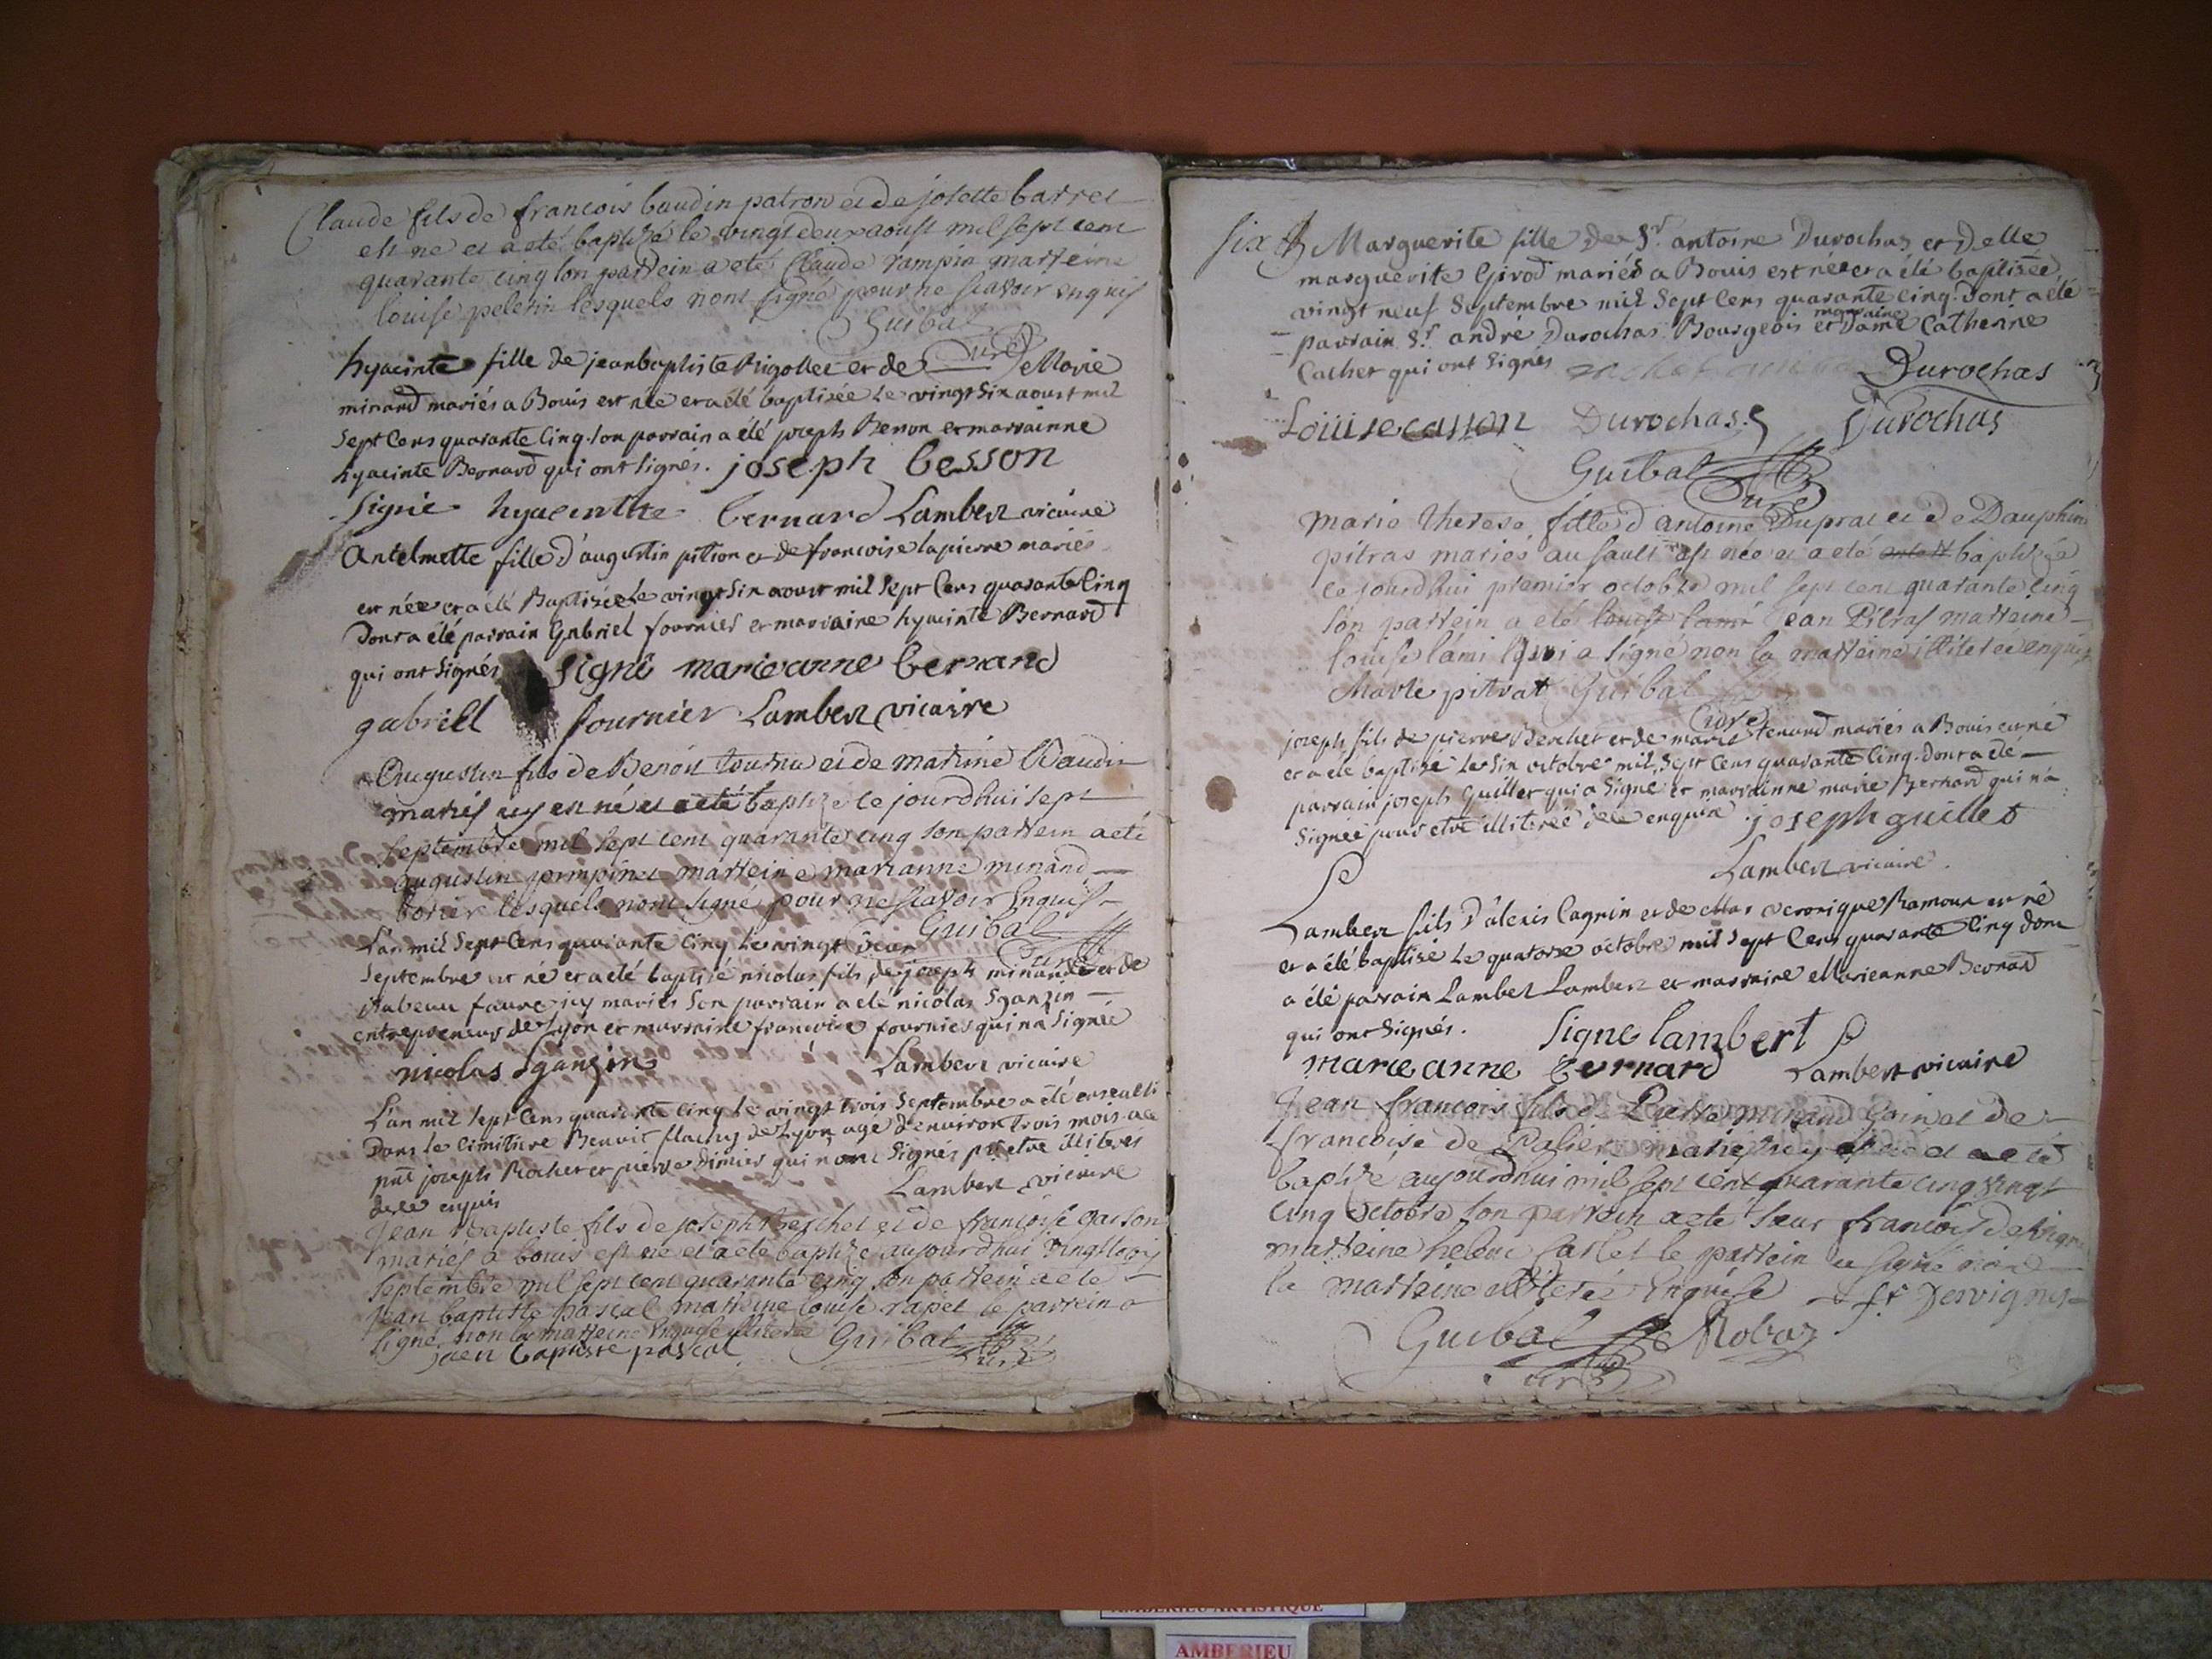 Claude fils de francois baudin patron et de josette barret
est ne et a eté baptizé le vingt deux aoust mil sept cent
quarante cinq son parrein a eté Claude rampin marreine
louise peletin lesquels nont signé pour ne scavoir enquis
Guibal
Curé
hyacinte fille de jean baptiste Rigollet et de Marie
minand mariés a Bouis est née et a été baptisée le vingt six aoust mil
sept Cens quarante Cinq. son parrain a été joseph Besson et marrainne
hyacinte Bernard qui ont signés. joseph besson
signé hyacinthe bernard Lambert vicaire
Antelmette fille d'augustin pition et de francoise lapierre mariés
est née et a été Baptisée le vingt six aoust mil sept Cens quarante Cinq
Dont a été parrain Gabriel fournier et marraine hyacinte Bernard
qui ont signés signé marie anne bernand
gabriel fournier Lambert vicaire
Augustin fils de Benoit tournu et de marine Baudin
mariés icy est né et a eté baptizé ce jourdhui sept
septembre mil sept cent quarante cinq son parrein a eté
augustin pompinet marreine marianne minand
lesquels nont signé pour ne scavoir Enquis
Guibal
Curé
L'an mil Sept Cens quarante Cinq le vingt deux
Septembre est né et a été baptisé nicolas fils de joseph minand et de
isabeau faure icy mariés Son parrain a été nicolas Sganzin
entrepreneur de Lyon et marraine francoise fournier qui n'a Signée
nicolas Sganzin Lambert vicaire
L'an mil sept Cens quarante Cinq le vingt trois Septembre a été enseveli
Dans le Cimitiere Benoit flachy de Lyon agé d'environ trois mois
pnt joseph Rochet et pierre Dimier qui n'ont Signés pr etre illiterés
de ce enquis Lambert vicaire
Jean Baptiste fils de joseph Berchet et de francoise Casson
mariés a bouis est né et a eté baptizé aujourdhui vingt trois
septembre mil sept cent quarante cinq son parrein a eté
Jean baptiste pascal marreine louise rapet le parrein a
signé non la marreine Enquise illiterée Guibal
jaen baptiste pascal Curé
six # Marguerite fille de Sr. antoine Durochas et Delle
marguerite Girod mariés a Bouis est née et a été baptisée
vingt neuf Septembre mil Sept Cens quarante Cinq. Dont a été
parrain Sr andre Durochas Bourgeois et marraine Dame Catherine
Cachet qui ont signés Durochas
Louise casson Durochas. Durochas
Guibal
Curé
marie therese fille d antoine Duprat et de Dauphine
pitras mariés au sault est née et a eté baptizée
ce jourdhui premier octobre mil sept cent quarante cinq
son parrein a eté louise lami Jean Pitras marreine
louise lami qui a signé non la marreine illiterée enquise
pitrat Guibal
Curé
joseph fils de pierre Berchet et de marie tenand mariés a Bouis est né
et a été baptisé le six octobre mil Sept Cens quarante Cinq. Dont a été
parrain joseph Guillet qui a Signé et marrainne marie Bernard qui n'a
Signée pour etre illiterée de ce enquise. joseph guillet
Lambert vicaire.
Lambert fils D'alexis Cagnin et de veronique Ramoux est né
et a été baptisé le quatorze octobre mil sept Cens quarante Cinq dont
a été parrain Lambert Lambert et marraine Marieanne Bernard
qui ont signés. Signe lambert
marie anne bernard Lambert vicaire
Jean francois fils de Pierre minand Goinet de
francoise de Palier mariés icy est né et a eté
baptizé aujourdhui mil sept cent quarante cinq vingt
cinq octobre son parrein a eté sieur francois Desvignes
marreine helene Carlet le parrein a signé non
la marreine illiterée Enquise fr Desvignes
Guibal Robaz
Curé
AMBERIEU ARTISTIQUE
AMBERIEU